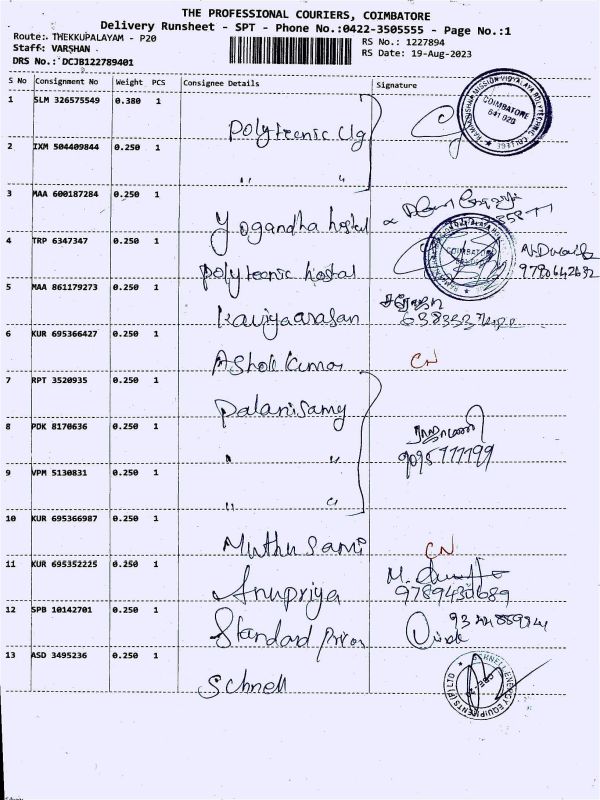 THE PROFESSIONAL COURIERS, COIMBATORE
Delivery Runsheet - SPT - Phone No.:0422-3505555 - Page No.:1
Route:- THEKKUPALAYAM - P20
RS No.: 1227894
Staff: VARSHAN
RS Date: 19-Aug-2023
DRS No.: DCJB122789401
S No Consignment No Weight PCS Consignee Details Signature
1 SLM 326575549 0.380 1
Polytecnic clg
COIMBATORE
641 020
2 IXM 504409844 0.250 1
" "
3 MAA 600187284 0.250 1
Yogandha hostel
4 TRP 6347347 0.250 1
polytecnic hostal
COIMBATORE
9780642632
5 MAA 861179273 0.250 1
Kaviyaarasan
6 KUR 695366427 0.250 1
Ashok kumar CN
7 RPT 3520935 0.250 1
Palanisamy
8 PDK 8170636 0.250 1
" "
9095777799
9 VPM 5130831 0.250 1
" "
10 KUR 695366987 0.250 1
Muthu Sami CN
11 KUR 695352225 0.250 1
Anupriya
9789430689
12 SPB 10142701 0.250 1
Standard
13 ASD 3495236 0.250 1
Schnell
SCHNELL ENERGY EQUIPMENTS (P) LTD